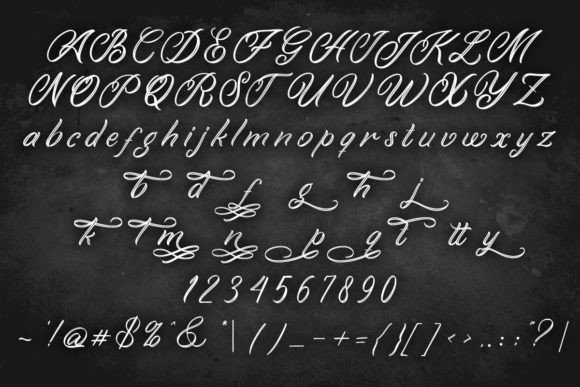 A B C D E F G H I J K L M
N O P Q R S T U V W X Y Z
a b c d e f g h i j k l m n o p q r s t u v w x y z
b d f g h j
k l m n p q t tt y
1 2 3 4 5 6 7 8 9 0
~ ' ! @ # $ % ^ & * | ( ) _ - + = { } [ ] / < > , . : ; " ? |